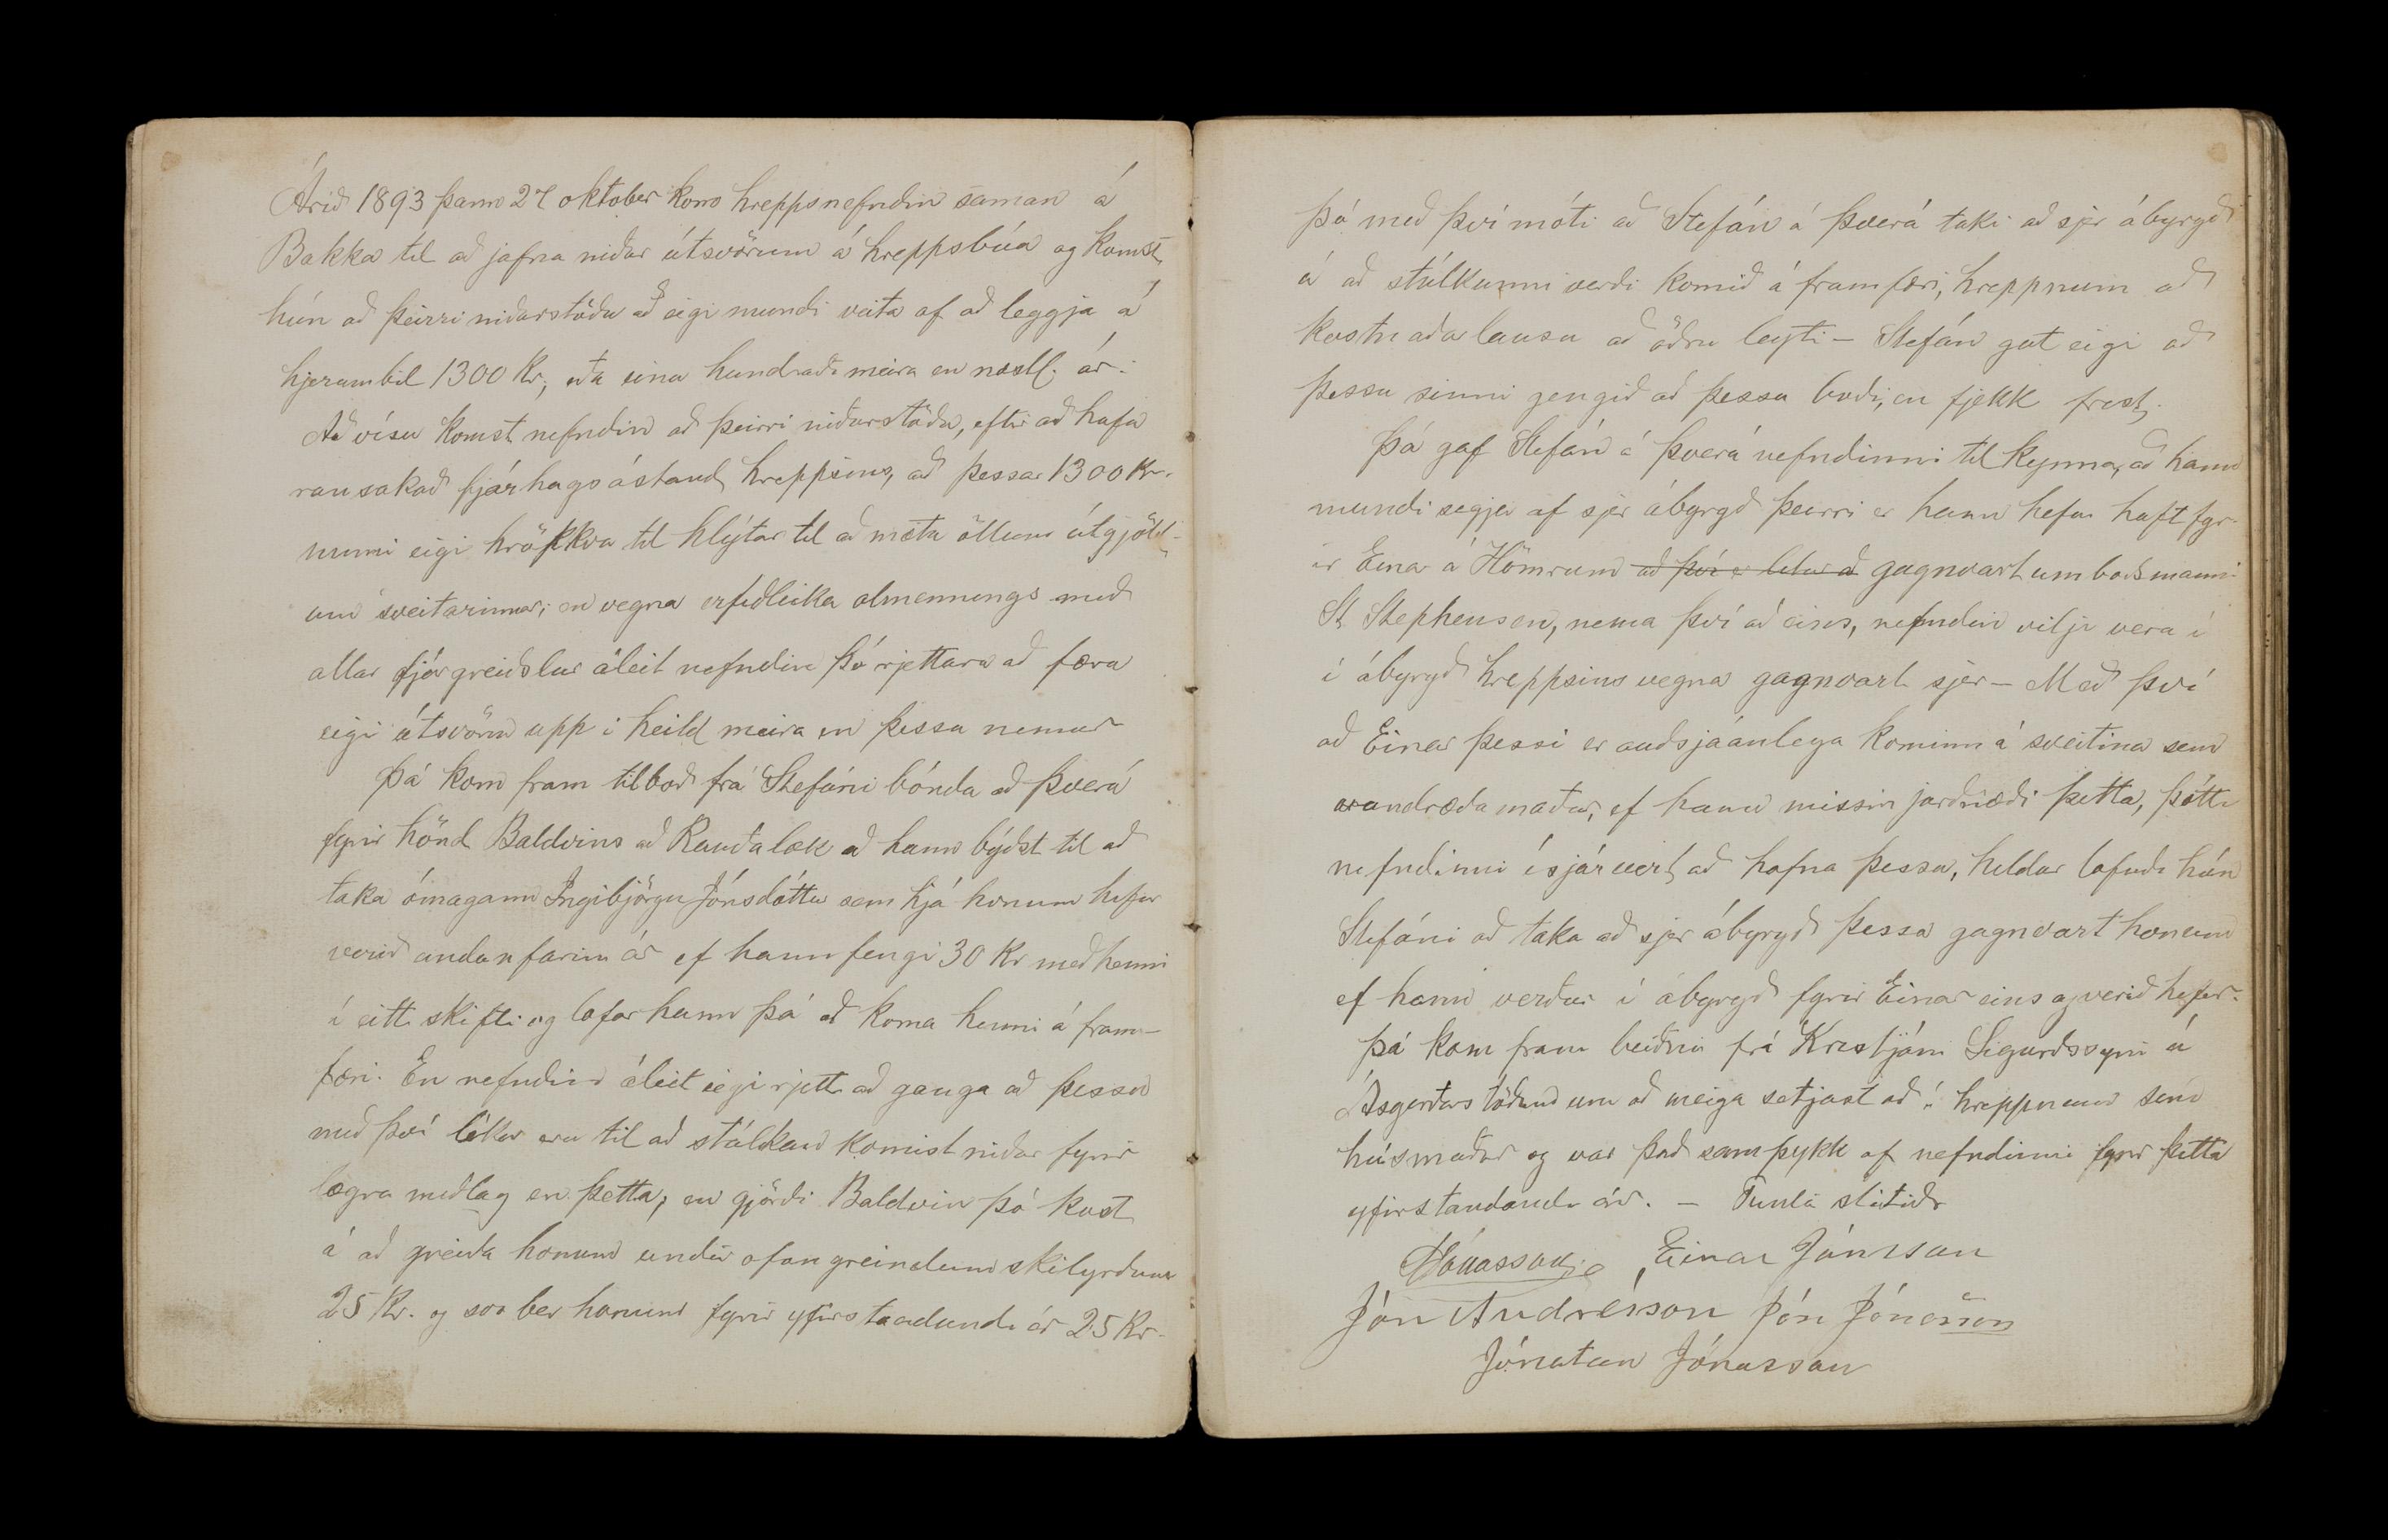 Árið 1893 þann 27 oktober kom hreppsnefndin saman á
Bakka til að jafna niður útsvörum á hreppsbúa og komst
hún að þeirri niðurstöðu að eigi mundi veita af að leggja á
hjerumbil 1300 kr, eða einu hundraði meira en næstl. ár.
Að vísu komst nefndin að þeirri niðurstöðu, eftir að hafa
ransakað fjárhagsástand hreppsins, að þessar 1300 kr.
mumi eigi hrökkva til hlýtar til að mæta öllum útgjöld-
um sveitarinnar; en vegna erfiðleika almennings með
allar fjárgreiðslur áleit nefndin þó rjettara að færa
eigi útsvörin upp í heild meira en þessu nemur
Þá kom fram tilboð frá Stefáni bónda að Þverá
fyrir hönd Baldvins að Rauðalæk að hann býðst til að
taka ómagann Ingibjörgu Jónsdóttur sem hjá honum hefur
verið undanfarin ár ef hann fengi 30 kr með henni
í eitt skifti og lofar hann þá að koma henni á fram-
færi. En nefndin áleit eigi rjett að ganga að þessu
með því líkur eru til að stúlkan komist niður fyrir
lægra meðlag en þetta, en gjörði Baldvin þó kost
á að greiða honum undir ofangreindum skilyrðum
25 kr. og svo ber honum fyrir yfirstandandi ár 25 kr.
Þó með því móti að Stefán á Þverá taki að sjer ábyrgð
á að stúlkunni verði komið á framfæri, hreppnum að
kostnaðarlausu að öðru leyti - Stefán gat eigi að
þessu sinni gengið að þessu boði, en fjekk frest.
Þá gaf Stefán á Þverá nefndinni til kynna, að hann
mundi segja af sjer ábyrgð þeirri er hann hefur haft fyr-
ir Einar á Hömrum að því er gagnvart umboðsmanni
St Stephensen, nema því að eins, nefndin vilji vera í
í ábyrgð hreppsins vegna gagnvart sjer - Með því
að Einar þessi er auðsjáanlega kominn á sveitina sem
vandræðamaður, ef hann missir jarðnæði þetta, þótti
nefndinni ísjárvert að hafna þessu, heldur lofaði hún
Stefáni að taka að sjer ábyrgð þessa gagnvart honum
ef hann verður í ábyrgð fyrir Einar eins og verið hefur.
Þá kom fram beiðni frá Kristjáni Sigurðssyni á
Ásgerðarstöðum um að meiga setjast að í hreppnum sem
húsmaður og var það samþykk af nefndinni fyrir þetta
yfirstandandi ár. - Fundi slitið
Jónasson Einar Jónsson
Jón Andrésson Jón Jónsson
Jónatan Jónasson